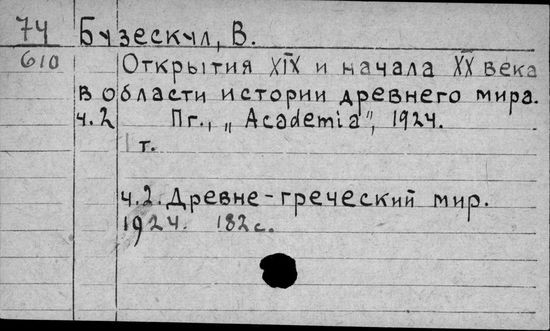 74 Бузескул, В.
610 Открытия XIX и начала XX века
в области истории древнего мира.
ч.2 Пг., „Academia", 1924.
1 т.
ч.2. Древне-греческий мир.
1924. 182 с.